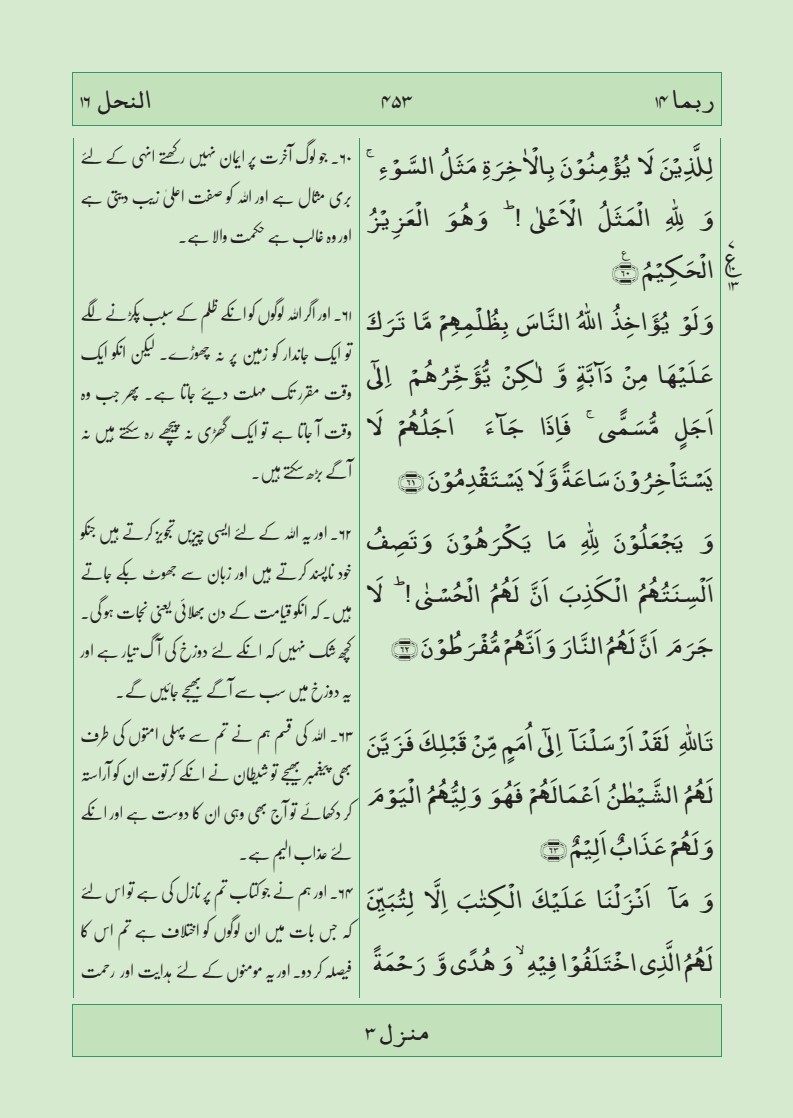 ربما ۱۴
۴۵۳
النحل ۱۶
لِلَّذِیۡنَ لَا یُؤۡمِنُوۡنَ بِالۡاٰخِرَۃِ مَثَلُ السَّوۡءِ ۚ
وَ لِلّٰہِ الۡمَثَلُ الۡاَعۡلٰی ! ؕ وَہُوَ الۡعَزِیۡزُ
الۡحَکِیۡمُ ﴿٪۶۰﴾
وَلَوۡ یُؤَاخِذُ اللّٰہُ النَّاسَ بِظُلۡمِہِمۡ مَّا تَرَکَ
عَلَیۡہَا مِنۡ دَآبَّۃٍ وَّ لٰکِنۡ یُّؤَخِّرُہُمۡ اِلٰۤی
اَجَلٍ مُّسَمًّی ۚ فَاِذَا جَآءَ اَجَلُہُمۡ لَا
یَسۡتَاۡخِرُوۡنَ سَاعَۃً وَّلَا یَسۡتَقۡدِمُوۡنَ ﴿۶۱﴾
وَ یَجۡعَلُوۡنَ لِلّٰہِ مَا یَکۡرَہُوۡنَ وَتَصِفُ
اَلۡسِنَتُہُمُ الۡکَذِبَ اَنَّ لَہُمُ الۡحُسۡنٰی ! ؕ لَا
جَرَمَ اَنَّ لَہُمُ النَّارَ وَاَنَّہُمۡ مُّفۡرَطُوۡنَ ﴿۶۲﴾
تَاللّٰہِ لَقَدۡ اَرۡسَلۡنَاۤ اِلٰۤی اُمَمٍ مِّنۡ قَبۡلِکَ فَزَیَّنَ
لَہُمُ الشَّیۡطٰنُ اَعۡمَالَہُمۡ فَہُوَ وَلِیُّہُمُ الۡیَوۡمَ
وَلَہُمۡ عَذَابٌ اَلِیۡمٌ ﴿۶۳﴾
وَ مَاۤ اَنۡزَلۡنَا عَلَیۡکَ الۡکِتٰبَ اِلَّا لِتُبَیِّنَ
لَہُمُ الَّذِی اخۡتَلَفُوۡا فِیۡہِ ۙ وَ ہُدًی وَّ رَحۡمَۃً
۷
ع
۱۳
۶۰۔ جو لوگ آخرت پر ایمان نہیں رکھتے انہی کے لئے
بری مثال ہے اور اللہ کو صفت اعلیٰ زیب دیتی ہے
اور وہ غالب ہے حکمت والا ہے۔
۶۱۔ اور اگر اللہ لوگوں کو انکے ظلم کے سبب پکڑنے لگے
تو ایک جاندار کو زمین پر نہ چھوڑے۔ لیکن انکو ایک
وقت مقرر تک مہلت دیئے جاتا ہے۔ پھر جب وہ
وقت آ جاتا ہے تو ایک گھڑی نہ پیچھے رہ سکتے ہیں نہ
آگے بڑھ سکتے ہیں۔
۶۲۔ اور یہ اللہ کے لئے ایسی چیزیں تجویز کرتے ہیں جنکو
خود ناپسند کرتے ہیں اور زبان سے جھوٹ بکے جاتے
ہیں۔ کہ انکو قیامت کے دن بھلائی یعنی نجات ہو گی۔
کچھ شک نہیں کہ انکے لئے دوزخ کی آگ تیار ہے اور
یہ دوزخ میں سب سے آگے بھیجے جائیں گے۔
۶۳۔ اللہ کی قسم ہم نے تم سے پہلی امتوں کی طرف
بھی پیغمبر بھیجے تو شیطان نے انکے کرتوت ان کو آراستہ
کر دکھائے تو آج بھی وہی ان کا دوست ہے اور انکے
لئے عذاب الیم ہے۔
۶۴۔ اور ہم نے جو کتاب تم پر نازل کی ہے تو اس لئے
کہ جس بات میں ان لوگوں کو اختلاف ہے تم اس کا
فیصلہ کر دو۔ اور یہ مومنوں کے لئے ہدایت اور رحمت
منزل ۳